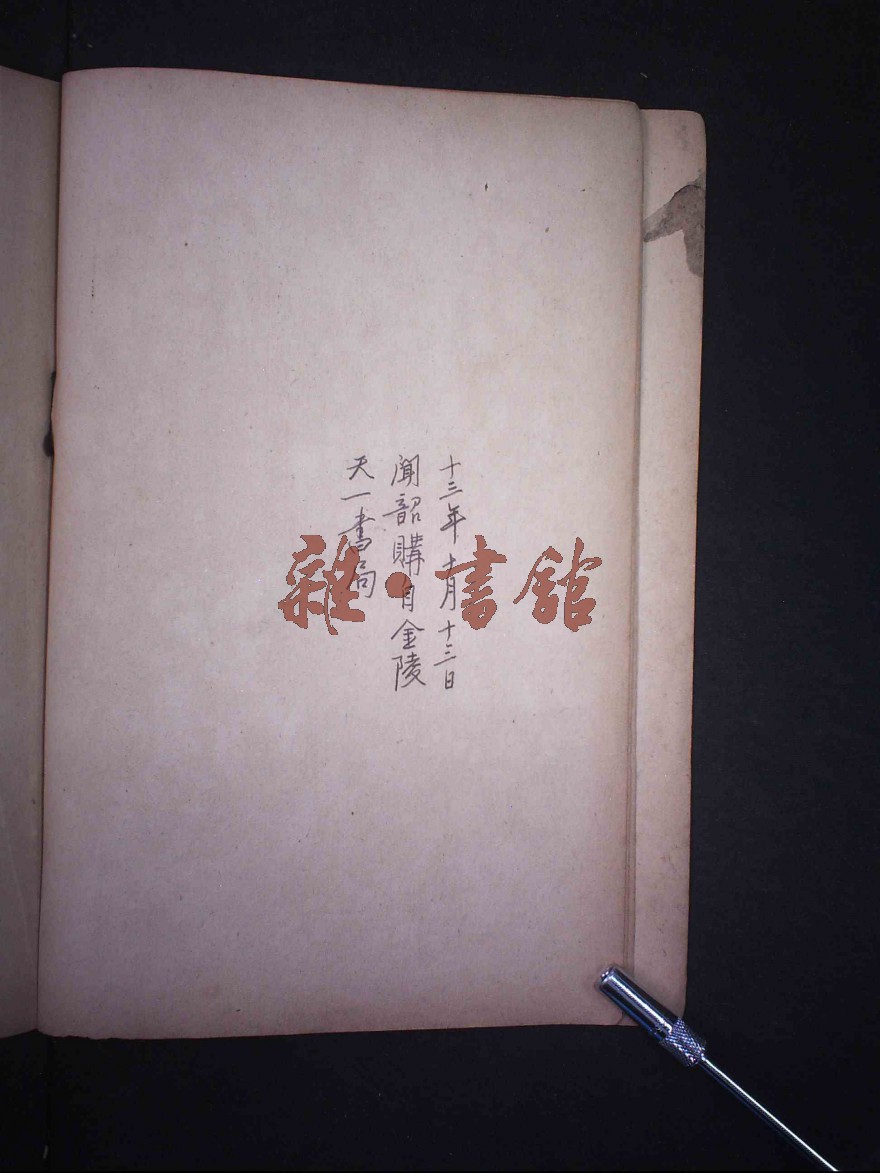 十三年十月十三日
聞韶購自金陵
天一書局
雜·書館